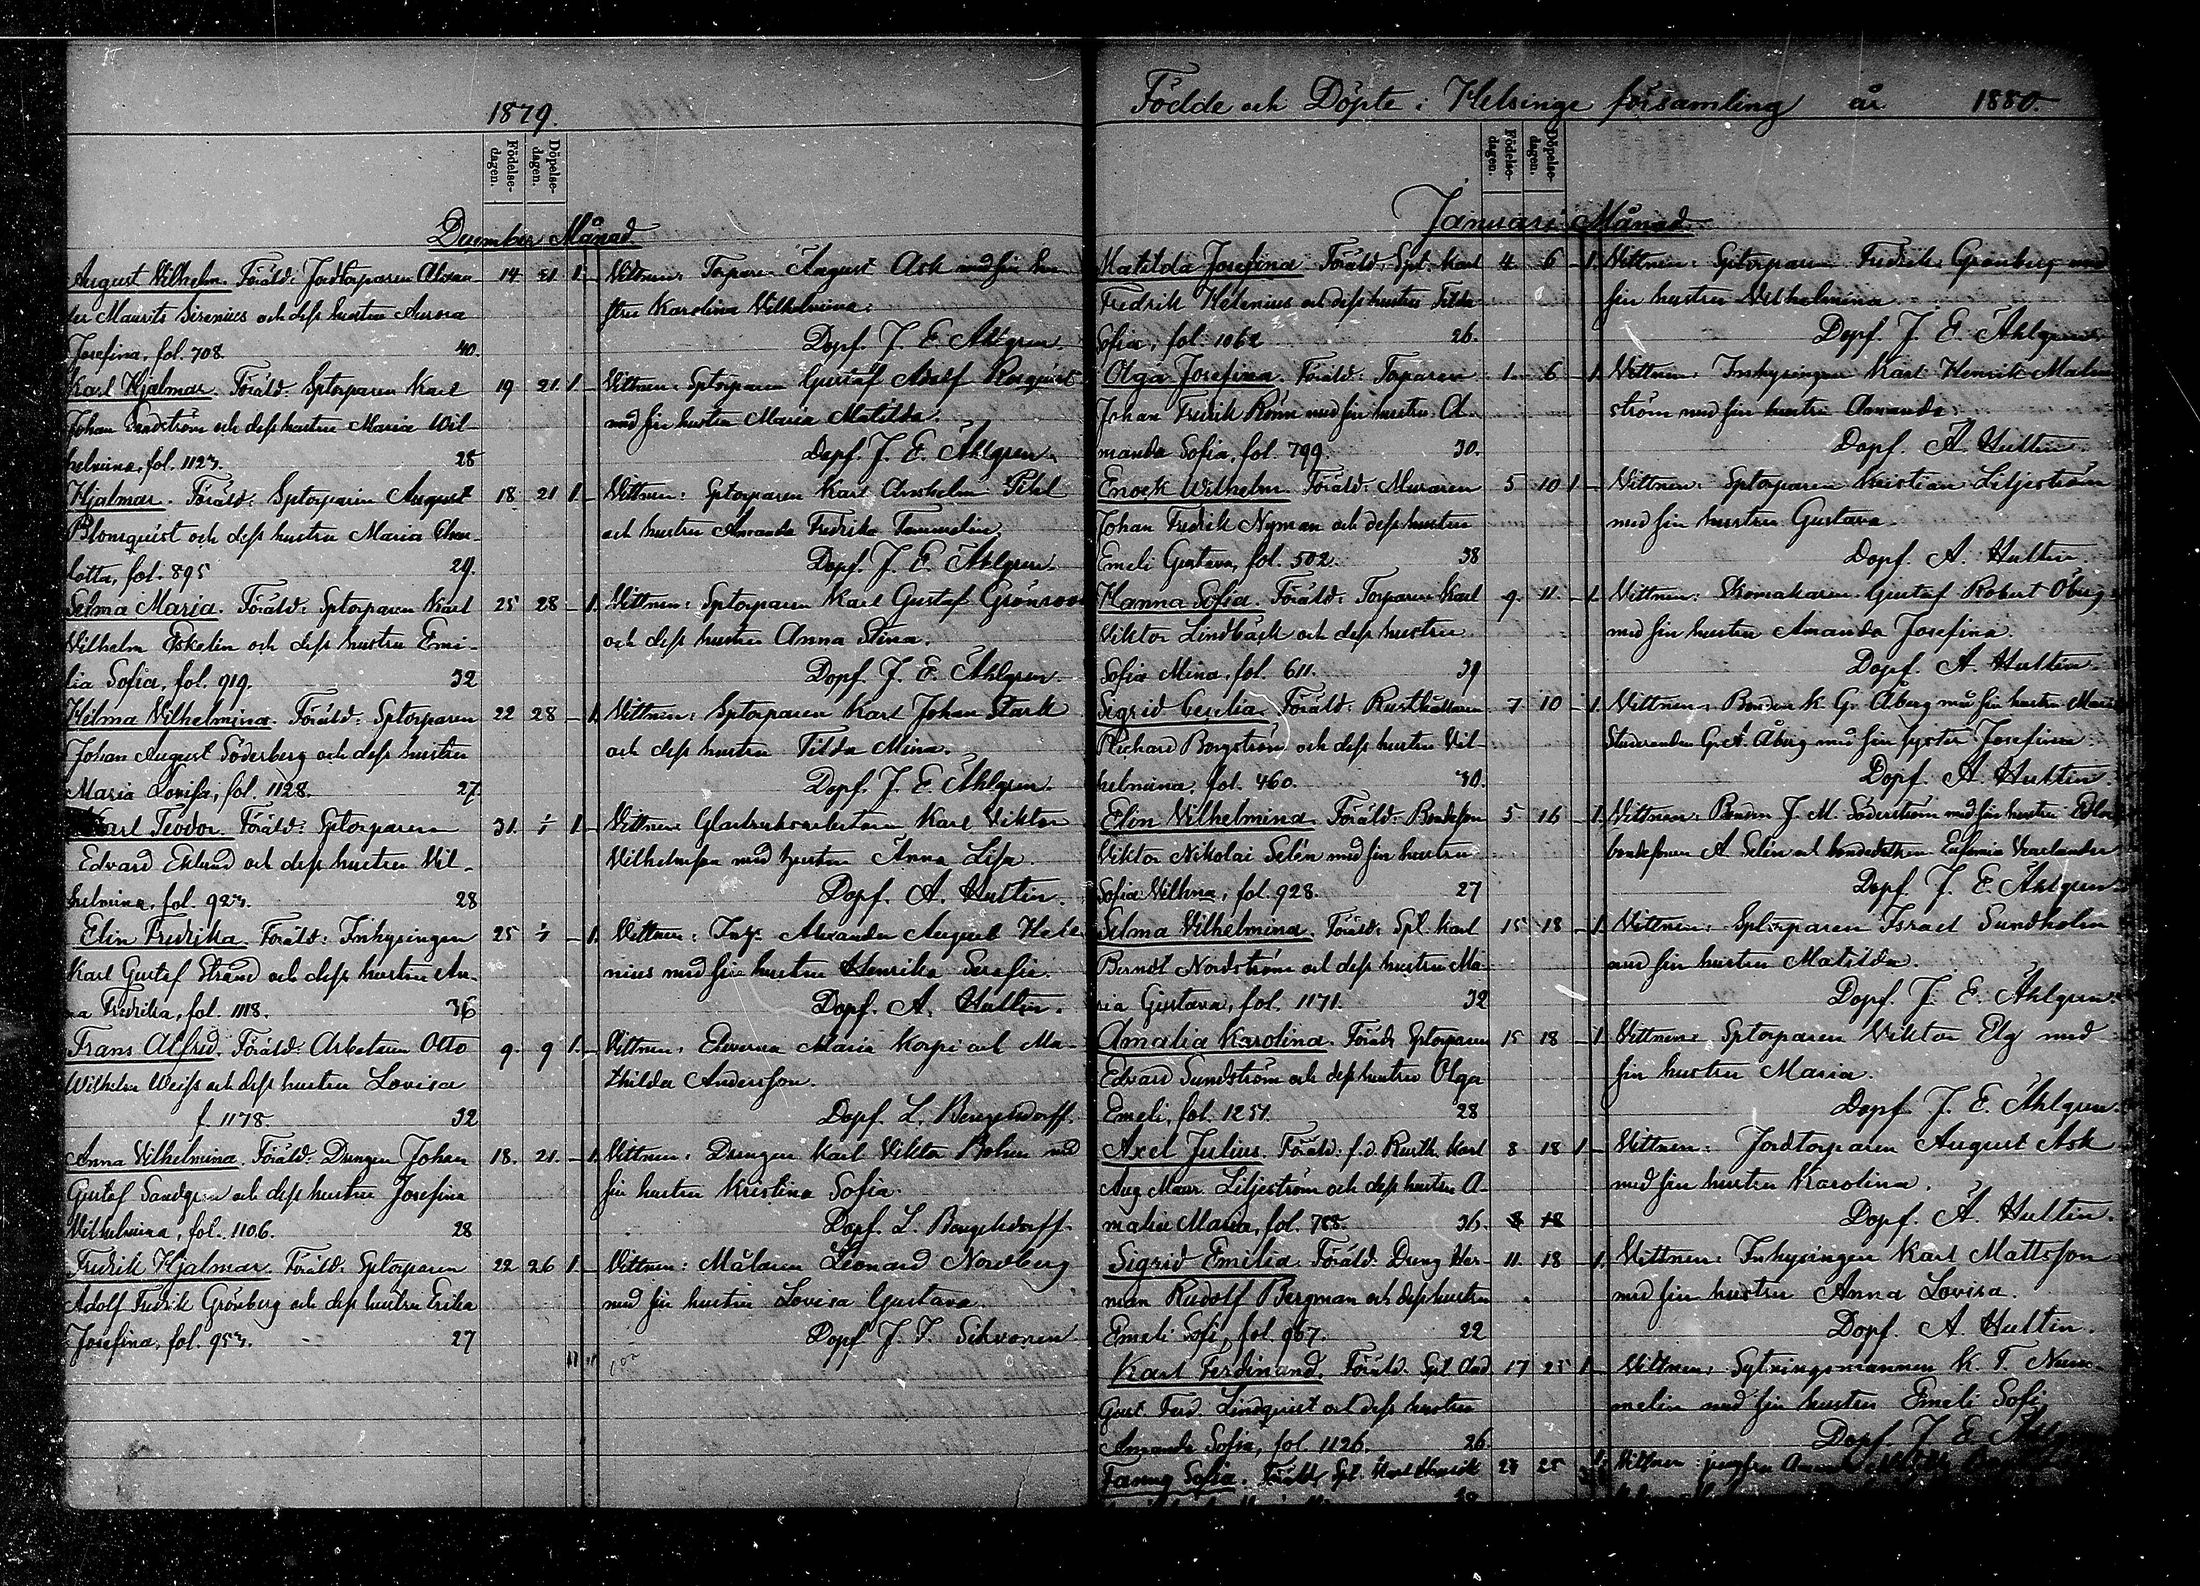 1879.
Födelse-
dagen.
Döpelse-
dagen.
December Månad
August Vilhelm. Föräld: Jordtorparen Alexan- 14 21 1 –
der Maurits Sirenius och dess hustru Aurora
Josefina, fol. 708. 40.
Vittnen: Torparen August Ask med sin hu-
stru Karolina Vilhelmina.
Döpf. J. E. Ahlgren.
Karl Hjalmar. Föräld: Sptorparen Karl 19 21. 1. –
Johan Sandström och dess hustru Maria Vil-
helmina, fol. 1123. 28
Vittnen: Sptorparen Gustaf Adolf Rosqvist
med sin hustru Maria Matilda.
Döpf. J. E. Ahlgren.
Hjalmar. Föräld: Sptorparen August 18 21 1 –
Blomquist och dess hustru Maria Char-
lotta, fol. 895 29.
Vittnen: Sptorparen Karl Anshelm
och hustru Amanda Fredrika Tammelin.
Döpf. J. E. Ahlgren.
Selma Maria. Föräld: Sptorparen Karl 25 28 – 1.
Vilhelm Eskelin och dess hustru Emi-
lia Sofia, fol. 919. 32
Vittnen: Sptorparen Karl Gustaf Grönroos
och dess hustru Anna Stina.
Döpf. J. E. Ahlgren.
Hilma Vilhelmina. Föräld: Sptorparen 22 28 – 1.
Johan August Söderberg och dess hustru
Maria Lovisa, fol. 1128. 27
Vittnen: Sptorparen Karl Johan Stark
och dess hustru Tilda Mina.
Döpf. J. E. Ahlgren.
Karl Teodor. Föräld: Sptorparen 31. 1 –
Edvard Eklund och dess hustru Vil-
helmina, fol. 923. 28
Vittnen: Glasbruksarbetaren Karl Viktor
Vilhelmsson med hustru Anna Lisa.
Döpf. A. Hultin.
Elin Fredrika. Föräld: Inhysingen 25 – 1.
Karl Gustaf Strand och dess hustru An-
na Fredrika, fol. 1118. 36
Vittnen: Inh. Alexander August Hele-
nius med sin hustru Henrika Serafia.
Döpf. A. Hultin.
Frans Alfred. Föräld: Arbetaren Otto 9. 9 1. –
Wilhelm Weiss och dess hustru Lovisa
f. 1178. 32
Vittnen: Eleverna Maria Korpi och Ma-
thilda Andersson.
Döpf. L. Bengelsdorff.
Anna Vilhelmina. Föräld: Drengen Johan 18. 21. – 1.
Gustaf Sandgren och dess hustru Josefina
Vilhelmina, fol. 1106. 28
Vittnen: Drengen Karl Viktor Bohm med
sin hustru Kristina Sofia.
Döpf. L. Bengelsdorff.
Fredrik Hjalmar. Föräld: Sptorparen 22 26 1. –
Adolf Fredrik Grönberg och dess hustru Erika
Josefina, fol. 953. 27
Vittnen: Målaren Leonard Nordberg
med sin hustru Lovisa Gustava.
Döpf J. T. Sihvonen
11 11
Födde och Döpte i Helsinge församling år 1880.
Födelse-
dagen.
Döpelse-
dagen.
Januari Månad.
Matilda Josefina. Föräld: Spt. Karl 4 6 – 1.
Fredrik Helenius och dess hustru Tilda
Sofia, fol. 1062 26.
Vittnen: Sptorparen Fredrik Grönberg med
sin hustru Vilhelmina.
Döpf. J. E. Ahlgren
Olga Josefina. Föräld: Torparen 1. 6 – 1.
Johan Fredrik Rönn med sin hustru A-
manda Sofia, fol. 799. 30.
Vittnen: Inhysingen Karl Henrik Malm-
ström med sin hustru Amanda.
Döpf. A. Hultin.
Enock Wilhelm. Föräld: Muraren 5 10 1 –
Johan Fredrik Nyman och dess hustru
Emeli Gustava, fol. 502. 38
Vittnen: Sptorparen Kristian Liljeström
med sin hustru Gustava.
Döpf. A. Hultin
Hanna Sofia. Föräld: Torparen Karl 9. 11 – 1.
Viktor Lindbäck och dess hustru
Sofia Mina, fol. 611. 39
Vittnen: Skomakaren Gustaf Robert Öberg
med sin hustru Amanda Josefina.
Döpf. A. Hultin.
Sigrid Cecilia. Föräld: Rusthållaren 7 10 – 1.
Richard Borgström och dess hustru Vil-
helmina, fol. 460. 30.
Vittnen: Bonden K. G. Åberg med sin hustru Maria
Studeranden G. A. Åberg med sin syster Josefina.
Döpf. A. Hultin.
Elin Vilhelmina. Föräld: Bondeson 5 16 – 1.
Viktor Nikolai Selén med sin hustru
Sofia Vilhma, fol. 928. 27
Vittnen: Bonden J. M. Söderström med sin hustru
bondesonen A Selin och bondedottren Eufemia
Döpf. J. E. Ahlgren.
Selma Vilhelmina. Föräld: Spt. Karl 15 18 – 1.
Berndt Nordström och dess hustru Ma-
ria Gustava, fol. 1171. 32
Vittnen: Sptorparen Israel Sundholm
med sin hustru Matilda.
Döpf. J. E. Ahlgren.
Amalia Karolina. Föräld. Sptorparen 15 18 – 1.
Edvard Sundström och dess hustru Olga
Emeli, fol. 1251. 28
Vittnen: Sptorparen Viktor Elg med
sin hustru Maria.
Döpf. J. E. Ahlgren.
Axel Julius. Föräld: f.d. Rusth. Karl 8 18 1 –
Aug. Maur. Liljeström och dess hustru A-
malia Maria, fol. 788. 36. 8 18
Vittnen: Jordtorparen August Ask
med sin hustru Karolina.
Döpf. A. Hultin.
Sigrid Emilia. Föräld: Dreng Her- 11. 18 – 1.
man Rudolf Bergman och dess hustru
Emeli Sofi, fol. 967. 22
Vittnen: Inhysingen Karl Mattsson
med sin hustru Anna Lovisa.
Döpf. A. Hultin.
Karl Ferdinand. Föräld. Spt. 17 25 1 –
Gust. Ferd. Lindquist och dess hustru
Amanda Sofia, fol. 1126. 26.
Vittnen: Sytningsmannen K. T. Num-
melin med sin hustru Emeli Sofi
Döpf. J. E. Ahlgren
Fanny Sofia. Föräld. Spt. Karl Henrik 23 25 1.
Vittnen jungfru